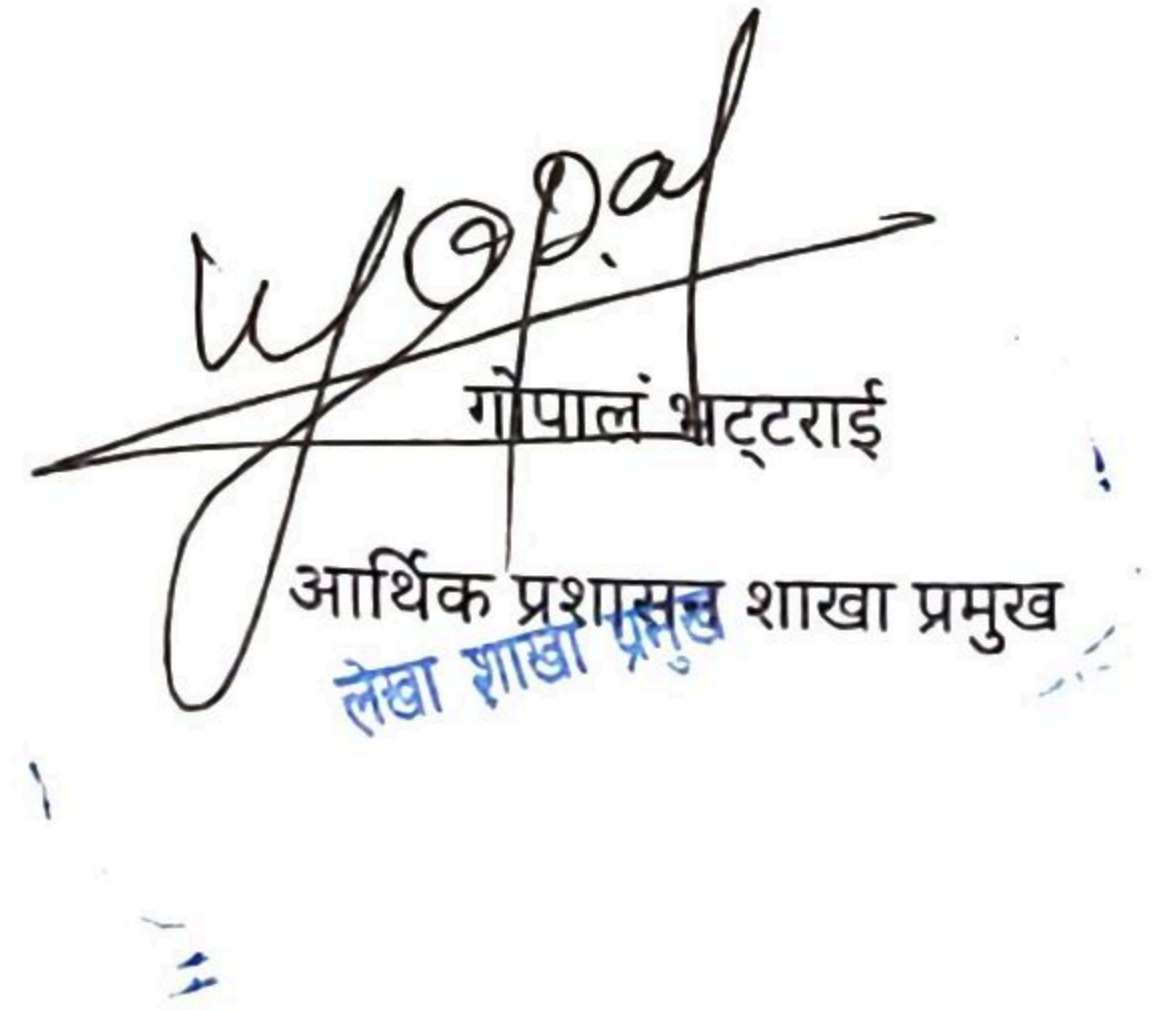 Gopal
गोपाल भट्टराई
आर्थिक प्रशासन शाखा प्रमुख
लेखा शाखा प्रमुख